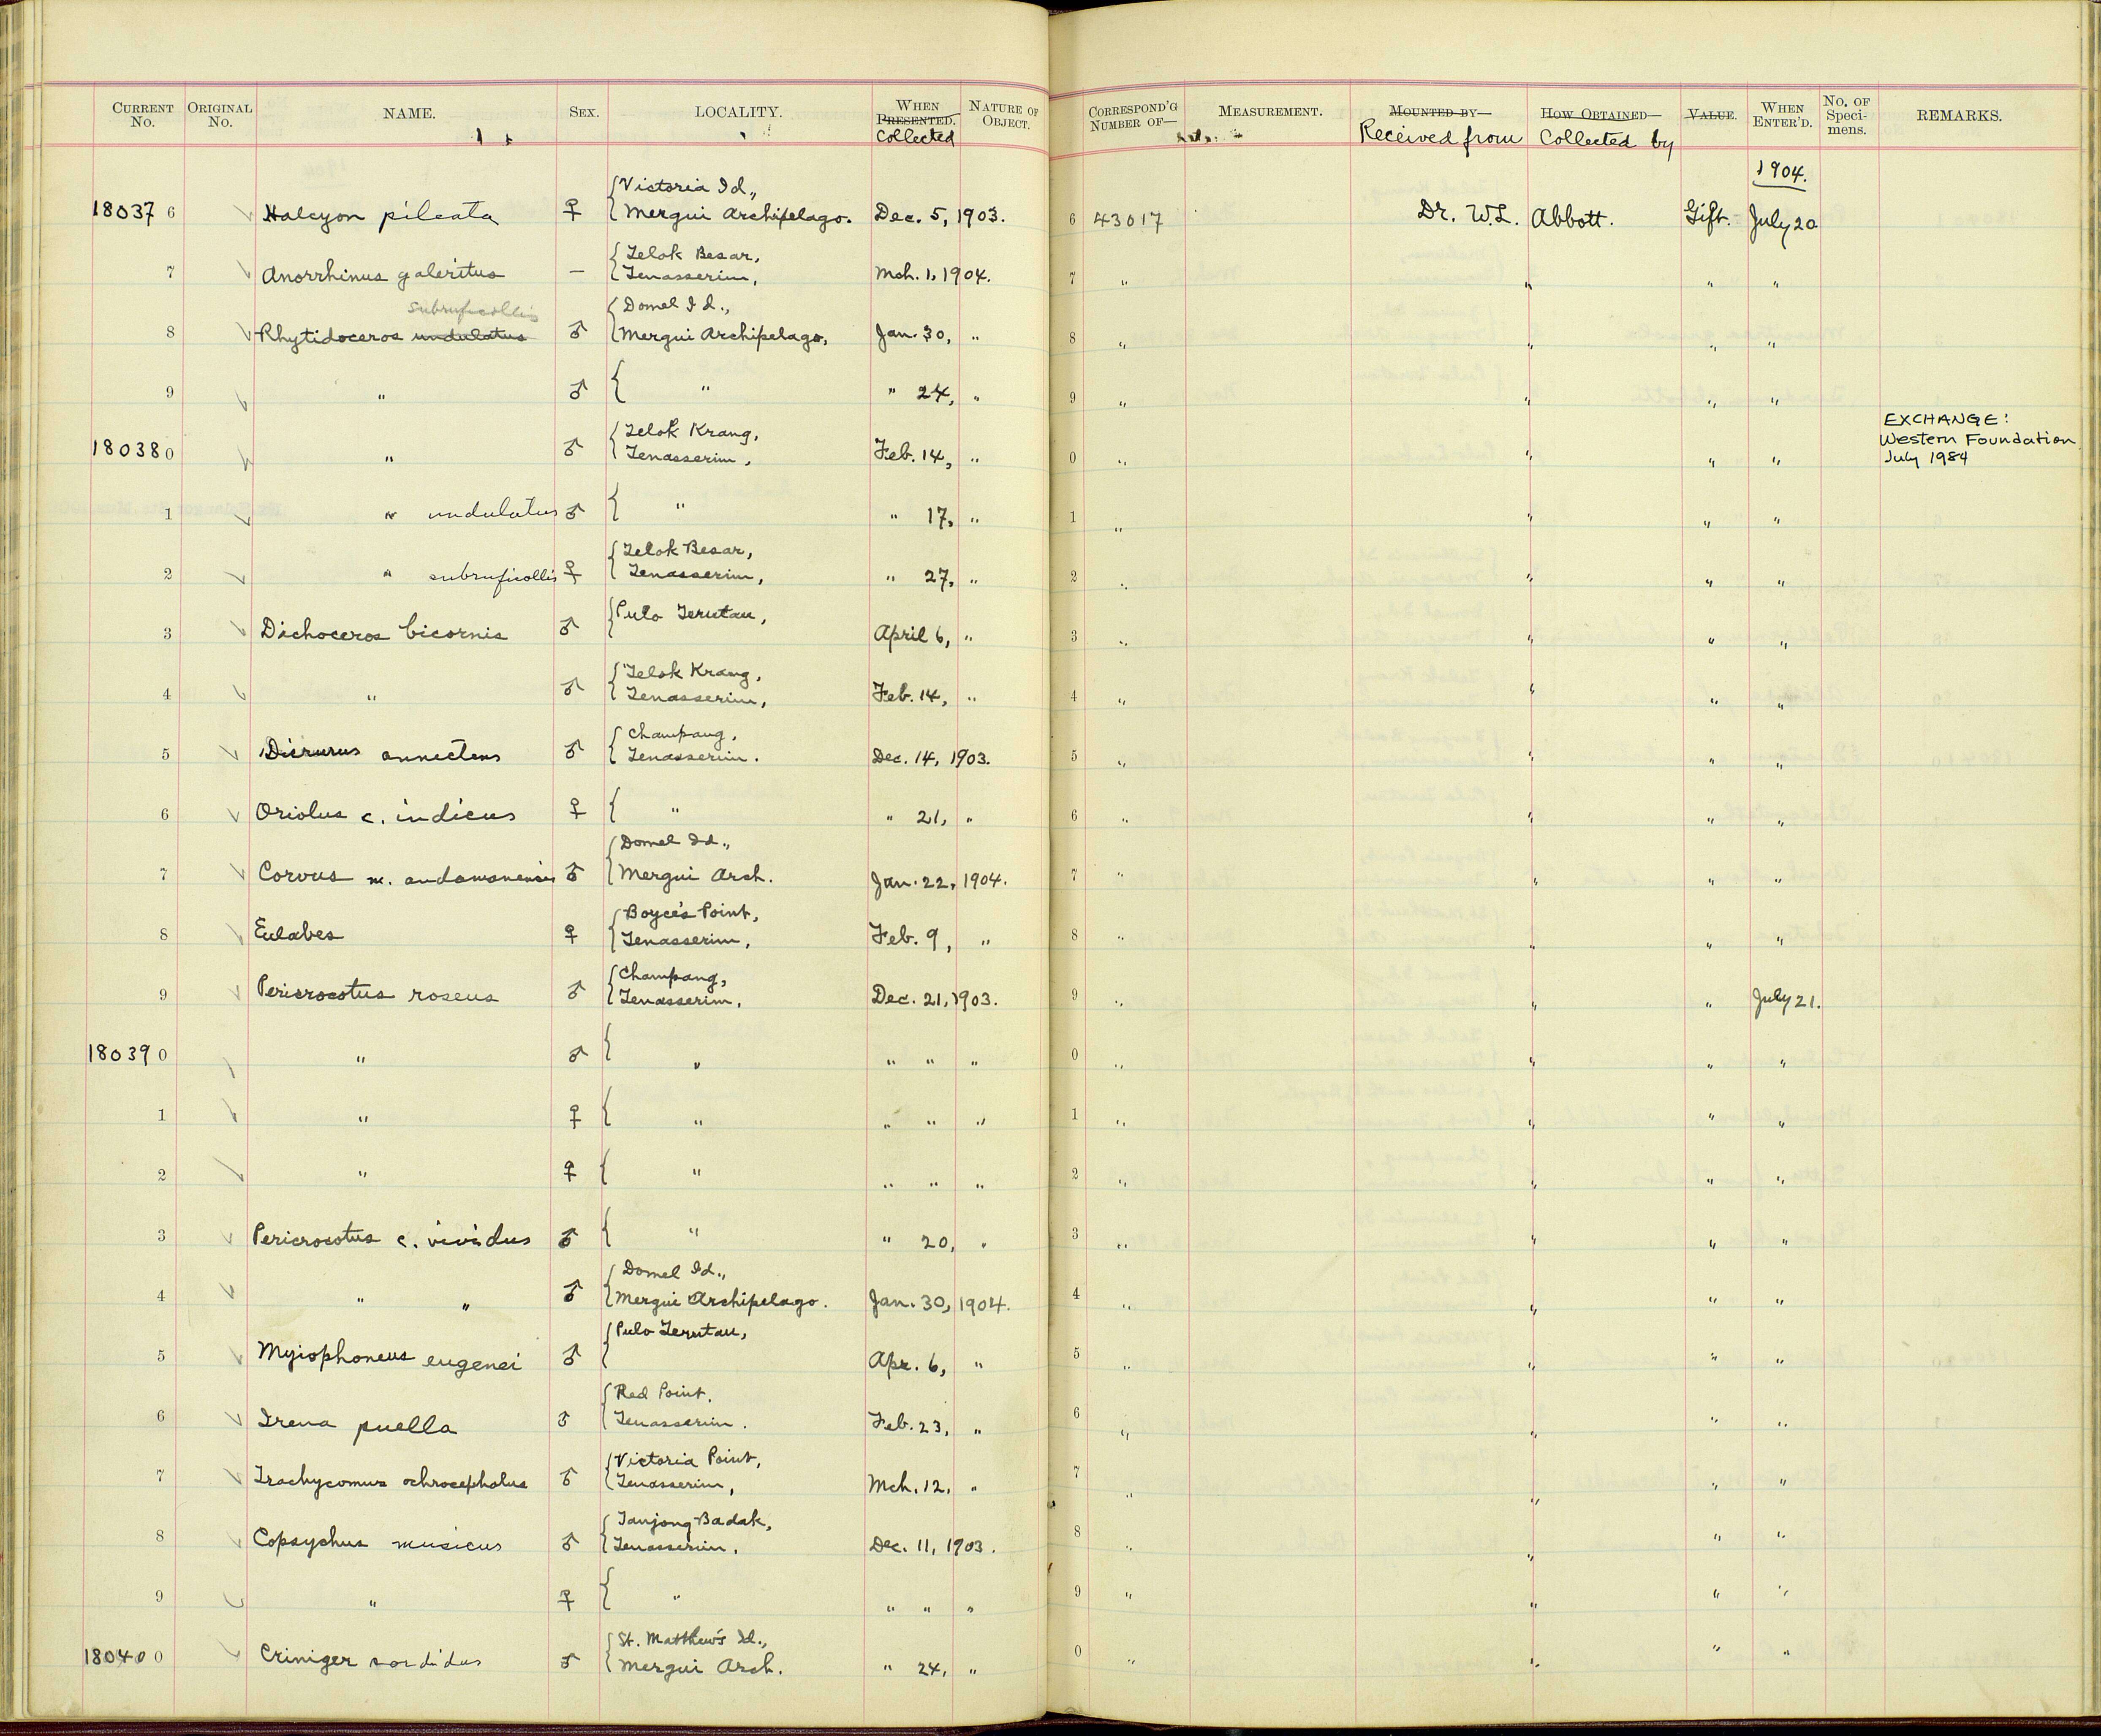 CURRENT No. ORIGINAL No. NAME. SEX. LOCALITY. WHEN PRESENTED. Collected NATURE OF OBJECT. CORRESPOND'G NUMBER OF— MEASUREMENT. MOUNTED BY— Received from HOW OBTAINED— Collected by VALUE. WHEN ENTER'D. No. OF Specimens. REMARKS.
1904.
18037 6 Halcyon pileata ♀ { Victoria Id., Mergui Archipelago. Dec. 5, 1903. 6 43017 Dr. W.L. Abbott. Gift. July 20
7 Anorrhinus galeritus — { Telok Besar, Tenasserim, Mch. 1, 1904. 7 " " " "
subruficollis
8 Rhytidoceros undulatus ♂ { Domel Id., Mergui Archipelago, Jan. 30, " 8 " " " "
9 " ♂ { " " 24, " 9 " " " "
18038 0 " ♂ { Telok Krang, Tenasserim, Feb. 14, " 0 " " " " EXCHANGE: Western Foundation July 1984
1 " undulatus ♂ { " " 17, " 1 " " " "
2 " subruficollis ♀ { Telok Besar, Tenasserim, " 27, " 2 " " " "
3 Dichoceros bicornis ♂ { Pulo Terutau, April 6, " 3 " " " "
4 " ♂ { Telok Krang, Tenasserim, Feb. 14, " 4 " " " "
5 Dicrurus annectens ♂ { Champang, Tenasserim. Dec. 14, 1903. 5 " " " "
6 Oriolus c. indicus ♀ { " " 21, " 6 " " " "
7 Corvus m. andamanensis ♂ { Domel Id., Mergui Arch. Jan. 22, 1904. 7 " " " "
8 Eulabes ♀ { Boyce's Point, Tenasserim, Feb. 9, " 8 " " " "
9 Pericrocotus roseus ♂ { Champang, Tenasserim, Dec. 21, 1903. 9 " " " July 21.
18039 0 " ♂ { " " " " 0 " " " "
1 " ♀ { " " " " 1 " " " "
2 " ♀ { " " " " 2 " " " "
3 Pericrocotus c. vividus ♂ { " " 20, " 3 " " " "
4 " " ♂ { Domel Id., Mergui Archipelago. Jan. 30, 1904. 4 " " " "
5 Myiophoneus eugenei ♂ { Pulo Terutau, Apr. 6, " 5 " " " "
6 Irena puella ♂ { Red Point, Tenasserim. Feb. 23, " 6 " " " "
7 Trachycomus ochrocephalus ♂ { Victoria Point, Tenasserim, Mch. 12, " 7 " " " "
8 Copsychus musicus ♂ { Tanjong Badak, Tenasserim. Dec. 11, 1903. 8 " " " "
9 " ♀ { " " " " 9 " " " "
18040 0 Criniger sordidus ♂ { St. Matthew's Id., Mergui Arch. " 24, " 0 " " " "